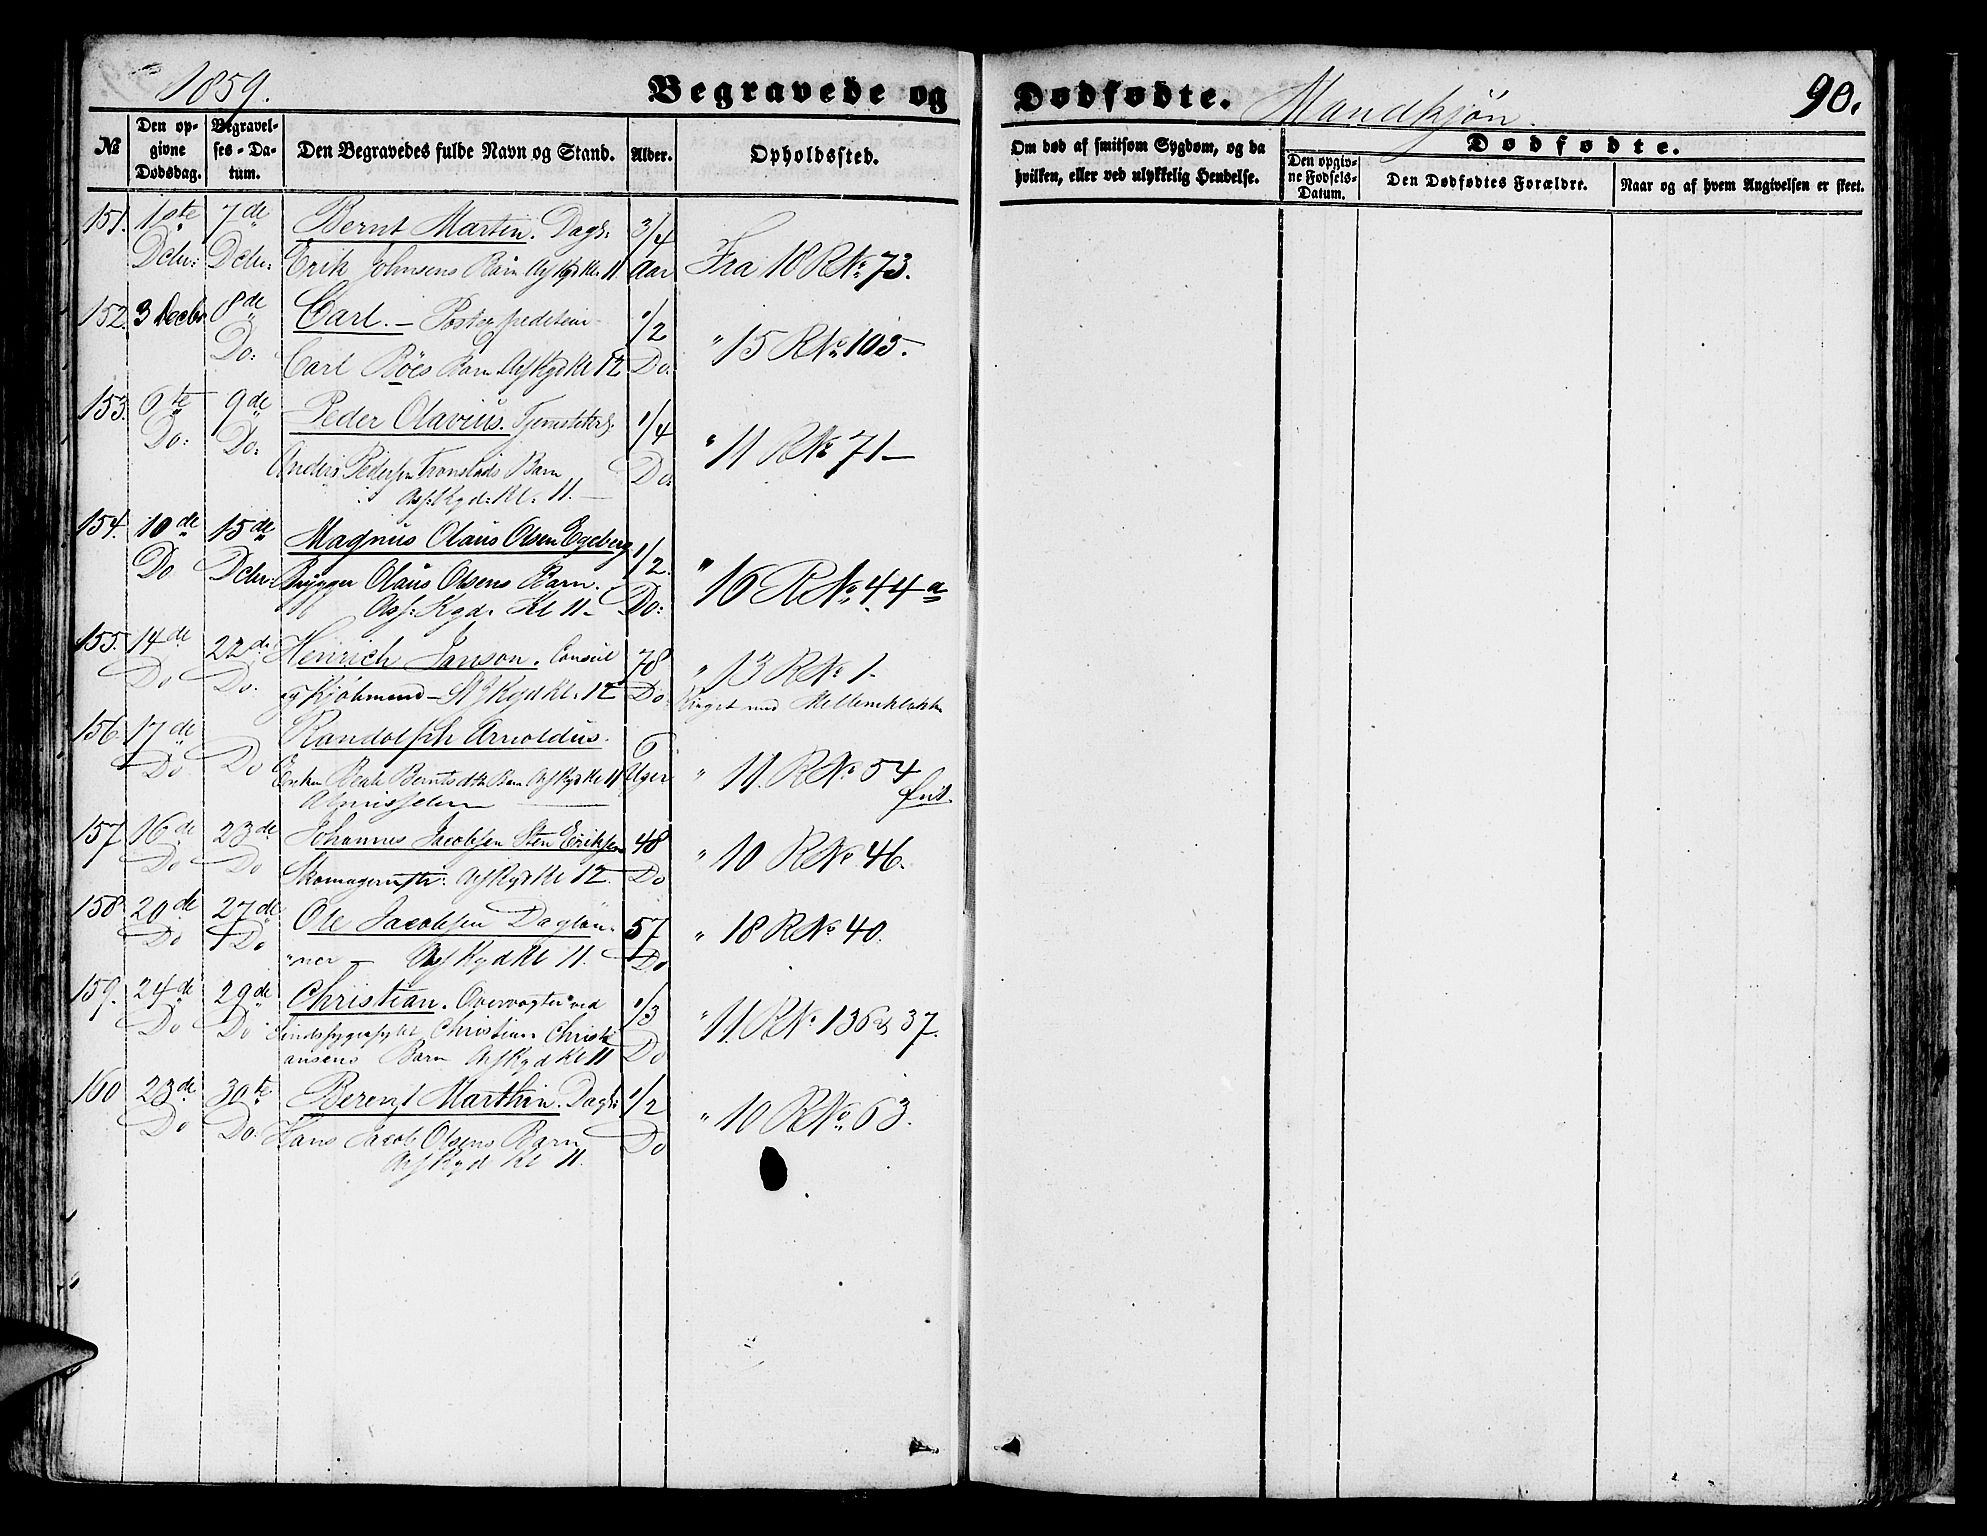 1859.
Begravede og
Dødfødte. Mandkjøn.
90.
№
Den opgivne Dødsdag.
Begravelses-Datum.
Den Begravedes fulde Navn og Stand.
Alder.
Opholdssted.
Om død af smitsom Sygdom, og da hvilken, eller ved ulykkelig Hendelse.
Dødfødte.
Den opgivne Fødsels-Datum.
Den Dødfødtes Forældre.
Naar og af hvem Angivelsen er skeet.
151. 1ste 7de Bernt Martin. Dagl: 3/4
Dcbr: Dcbr: Erik Johnsens Barn Afskyd Kl. 11. Aar Fra 18 R No. 73.
152. 3 Decbr 8de Carl. – Postexpediteur 1/2
Do: Carl Böes Barn Afskyd Kl 12 Do. " 15 R No. 105.
153. 6te 9de Peder Olavius. 1/4
Do: Do: Anders Pedersen Tronstads Barn Do: " 11 R No 71 –
Afskyd: Kl. 11. –
154. 10de 15de Magnus Olaus Olsen Egeberg 1/2.
Do Dcbr: Brygger Olaus Olsens Barn. " 16 R No. 44 a
Afs: Kyd. Kl 11 – Do:
155. 14de 22de Henrich Janson. Consul 78 " 13 R No 1 –
Do Do. og Kjöbmand – Afskyd Kl. 12 Do. Ringet med Mellemklokken
156. 17de Randolph Arnoldus. 6
Do Do Enken Beate Berntsdtr Barn Afskyd Kl 11 Uger " 11. R No 54
frit.
157 16de 23de Johannes Jacobsen Sten Eriksen 48
Do Do Skomagermstr: Afskyd Kl 12. Do " 10 R No 46.
158. 20de 27de Ole Jacobsen Daglön- 57 " 18 R No 40.
Do Do ner – Afskyd Kl 11. Do
159. 24de 29de Christian. Overvogter ved 1/3
Do Do Christian Christi- " 11. R No. 136 & 37.
ansens Barn Afskyd Kl 11 Do
160 23de 30te Berent Marthin. Dagl: 1/2
Do Do. Hans Jacob Olsens Barn Do " 10 R No. 63.
Afskyd Kl 11.